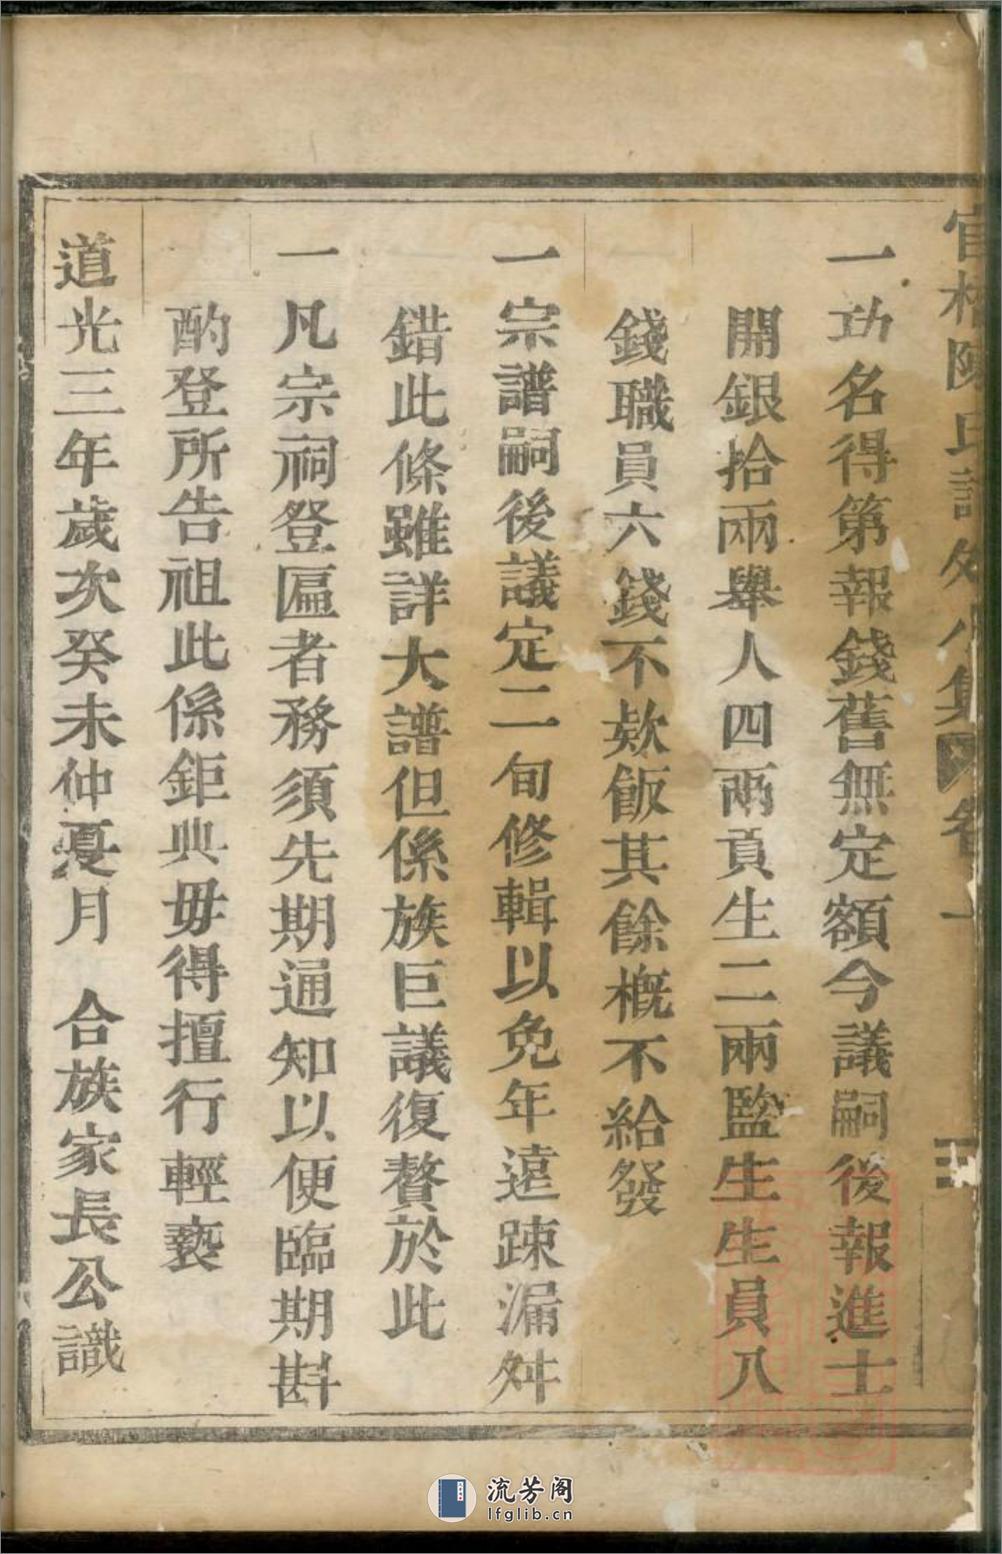 陳氏譜外八集 卷一 三
一功名得第報錢舊無定額今議嗣後報進士
開銀拾兩舉人四兩貢生二兩監生生員八
錢職員六錢不欵飯其餘概不給發
一宗譜嗣後議定二旬修輯以免年遠踈漏舛
錯此條雖詳大譜但係族巨議復贅於此
一凡宗祠登匾者務須先期通知以便臨期斟
酌登所告祖此係鉅典毋得擅行輕褻
道光三年歲次癸未仲夏月 合族家長公識
流芳阁
lfglib.cn